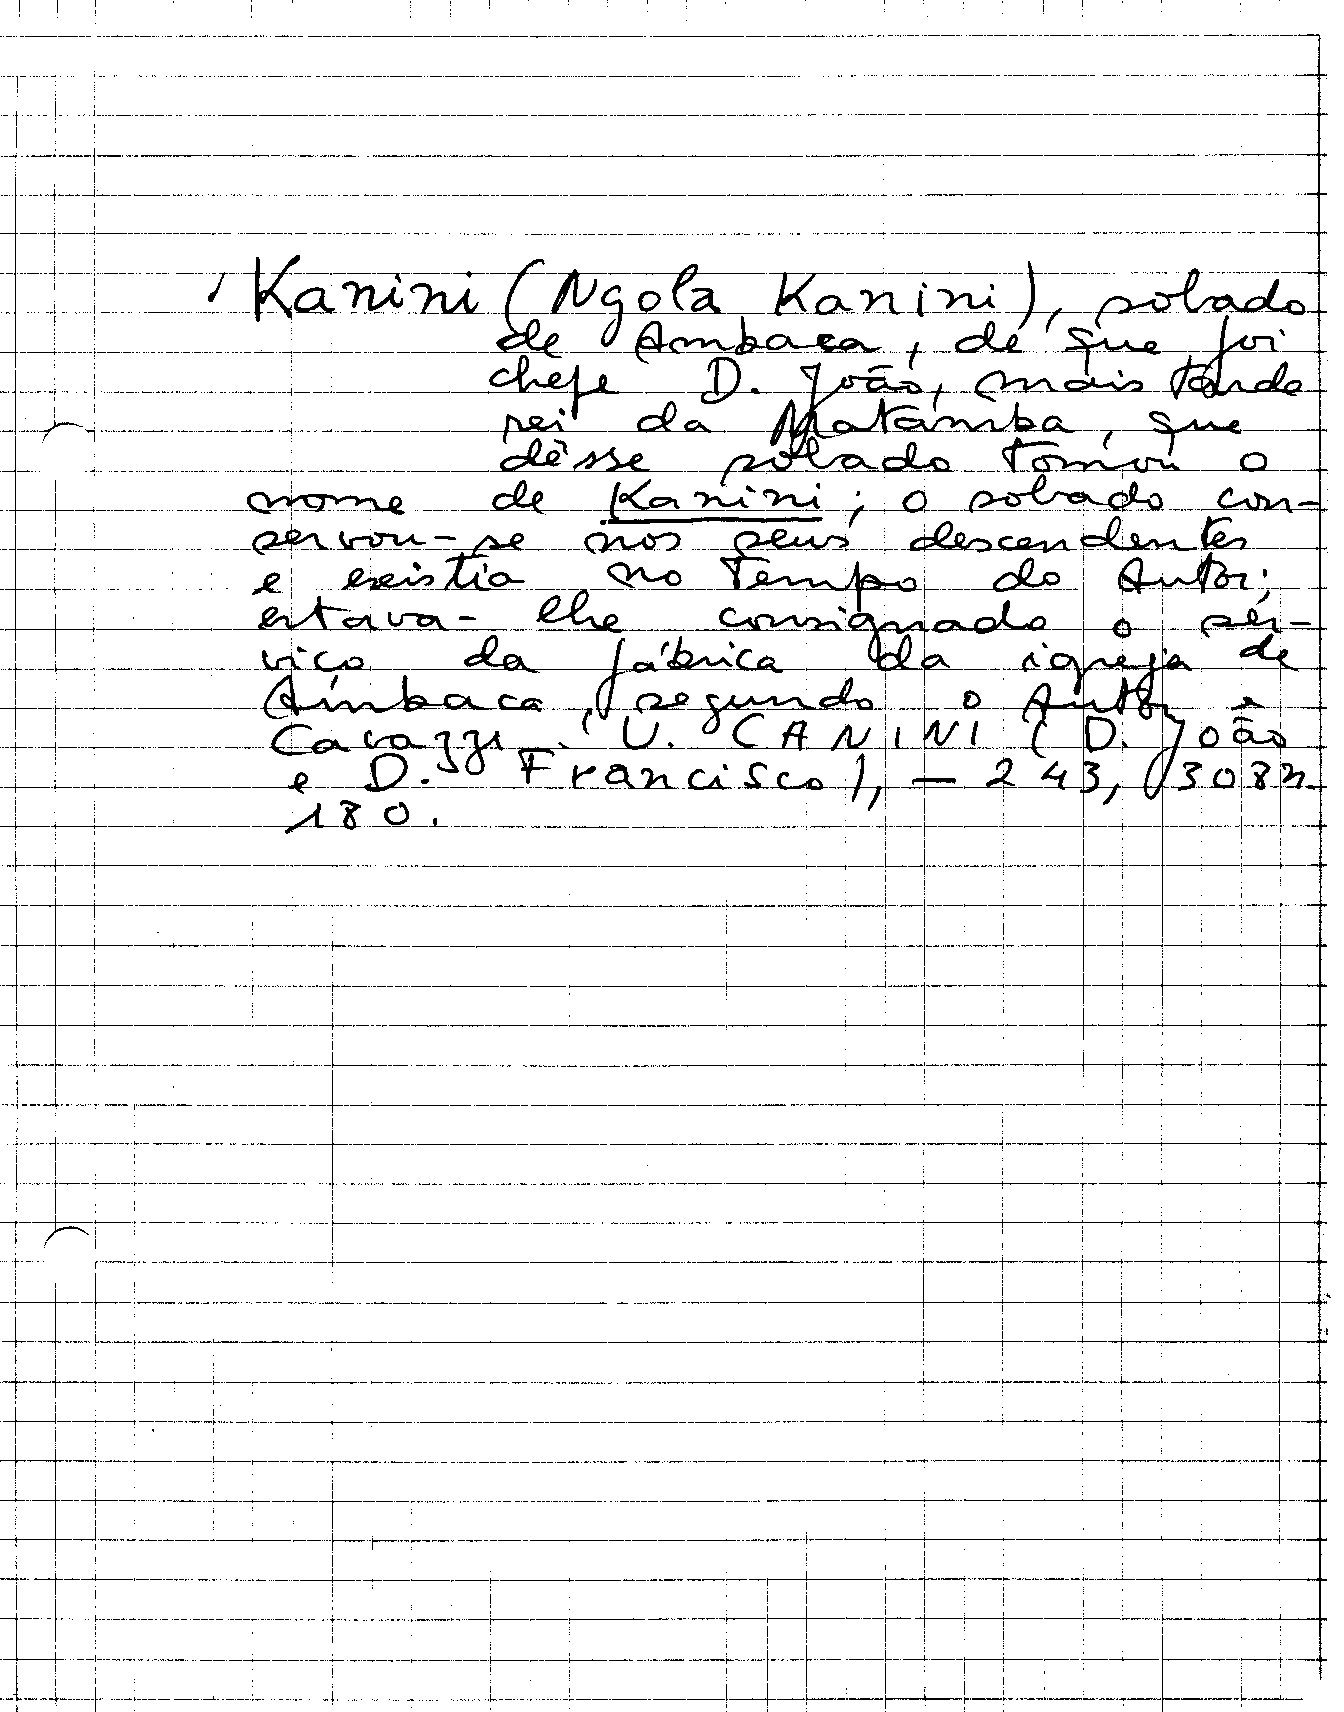 Kanini (Ngola Kanini), sobado
de Ambaca, de que foi
chefe D. João, mais tarde
rei da Matamba, que
dêsse sobado tomou o
nome de Kanini; o sobado con-
servou-se nos seus descendentes
e existia no tempo do Autor;
estava-lhe consignado o ser-
viço da fábrica da igreja de
Ambaca, segundo o Autor e
Cavazzi. V. CANINI (D. João
e D. Francisco), — 243, 308n
180.